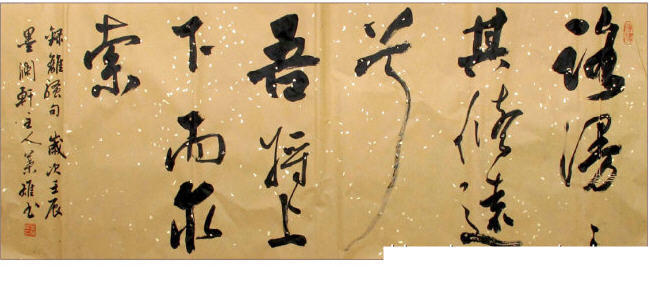 路漫々
其修遠
兮
吾將上
下而求
索
錄離騷句 歲次壬辰
墨润軒主人葉雄书